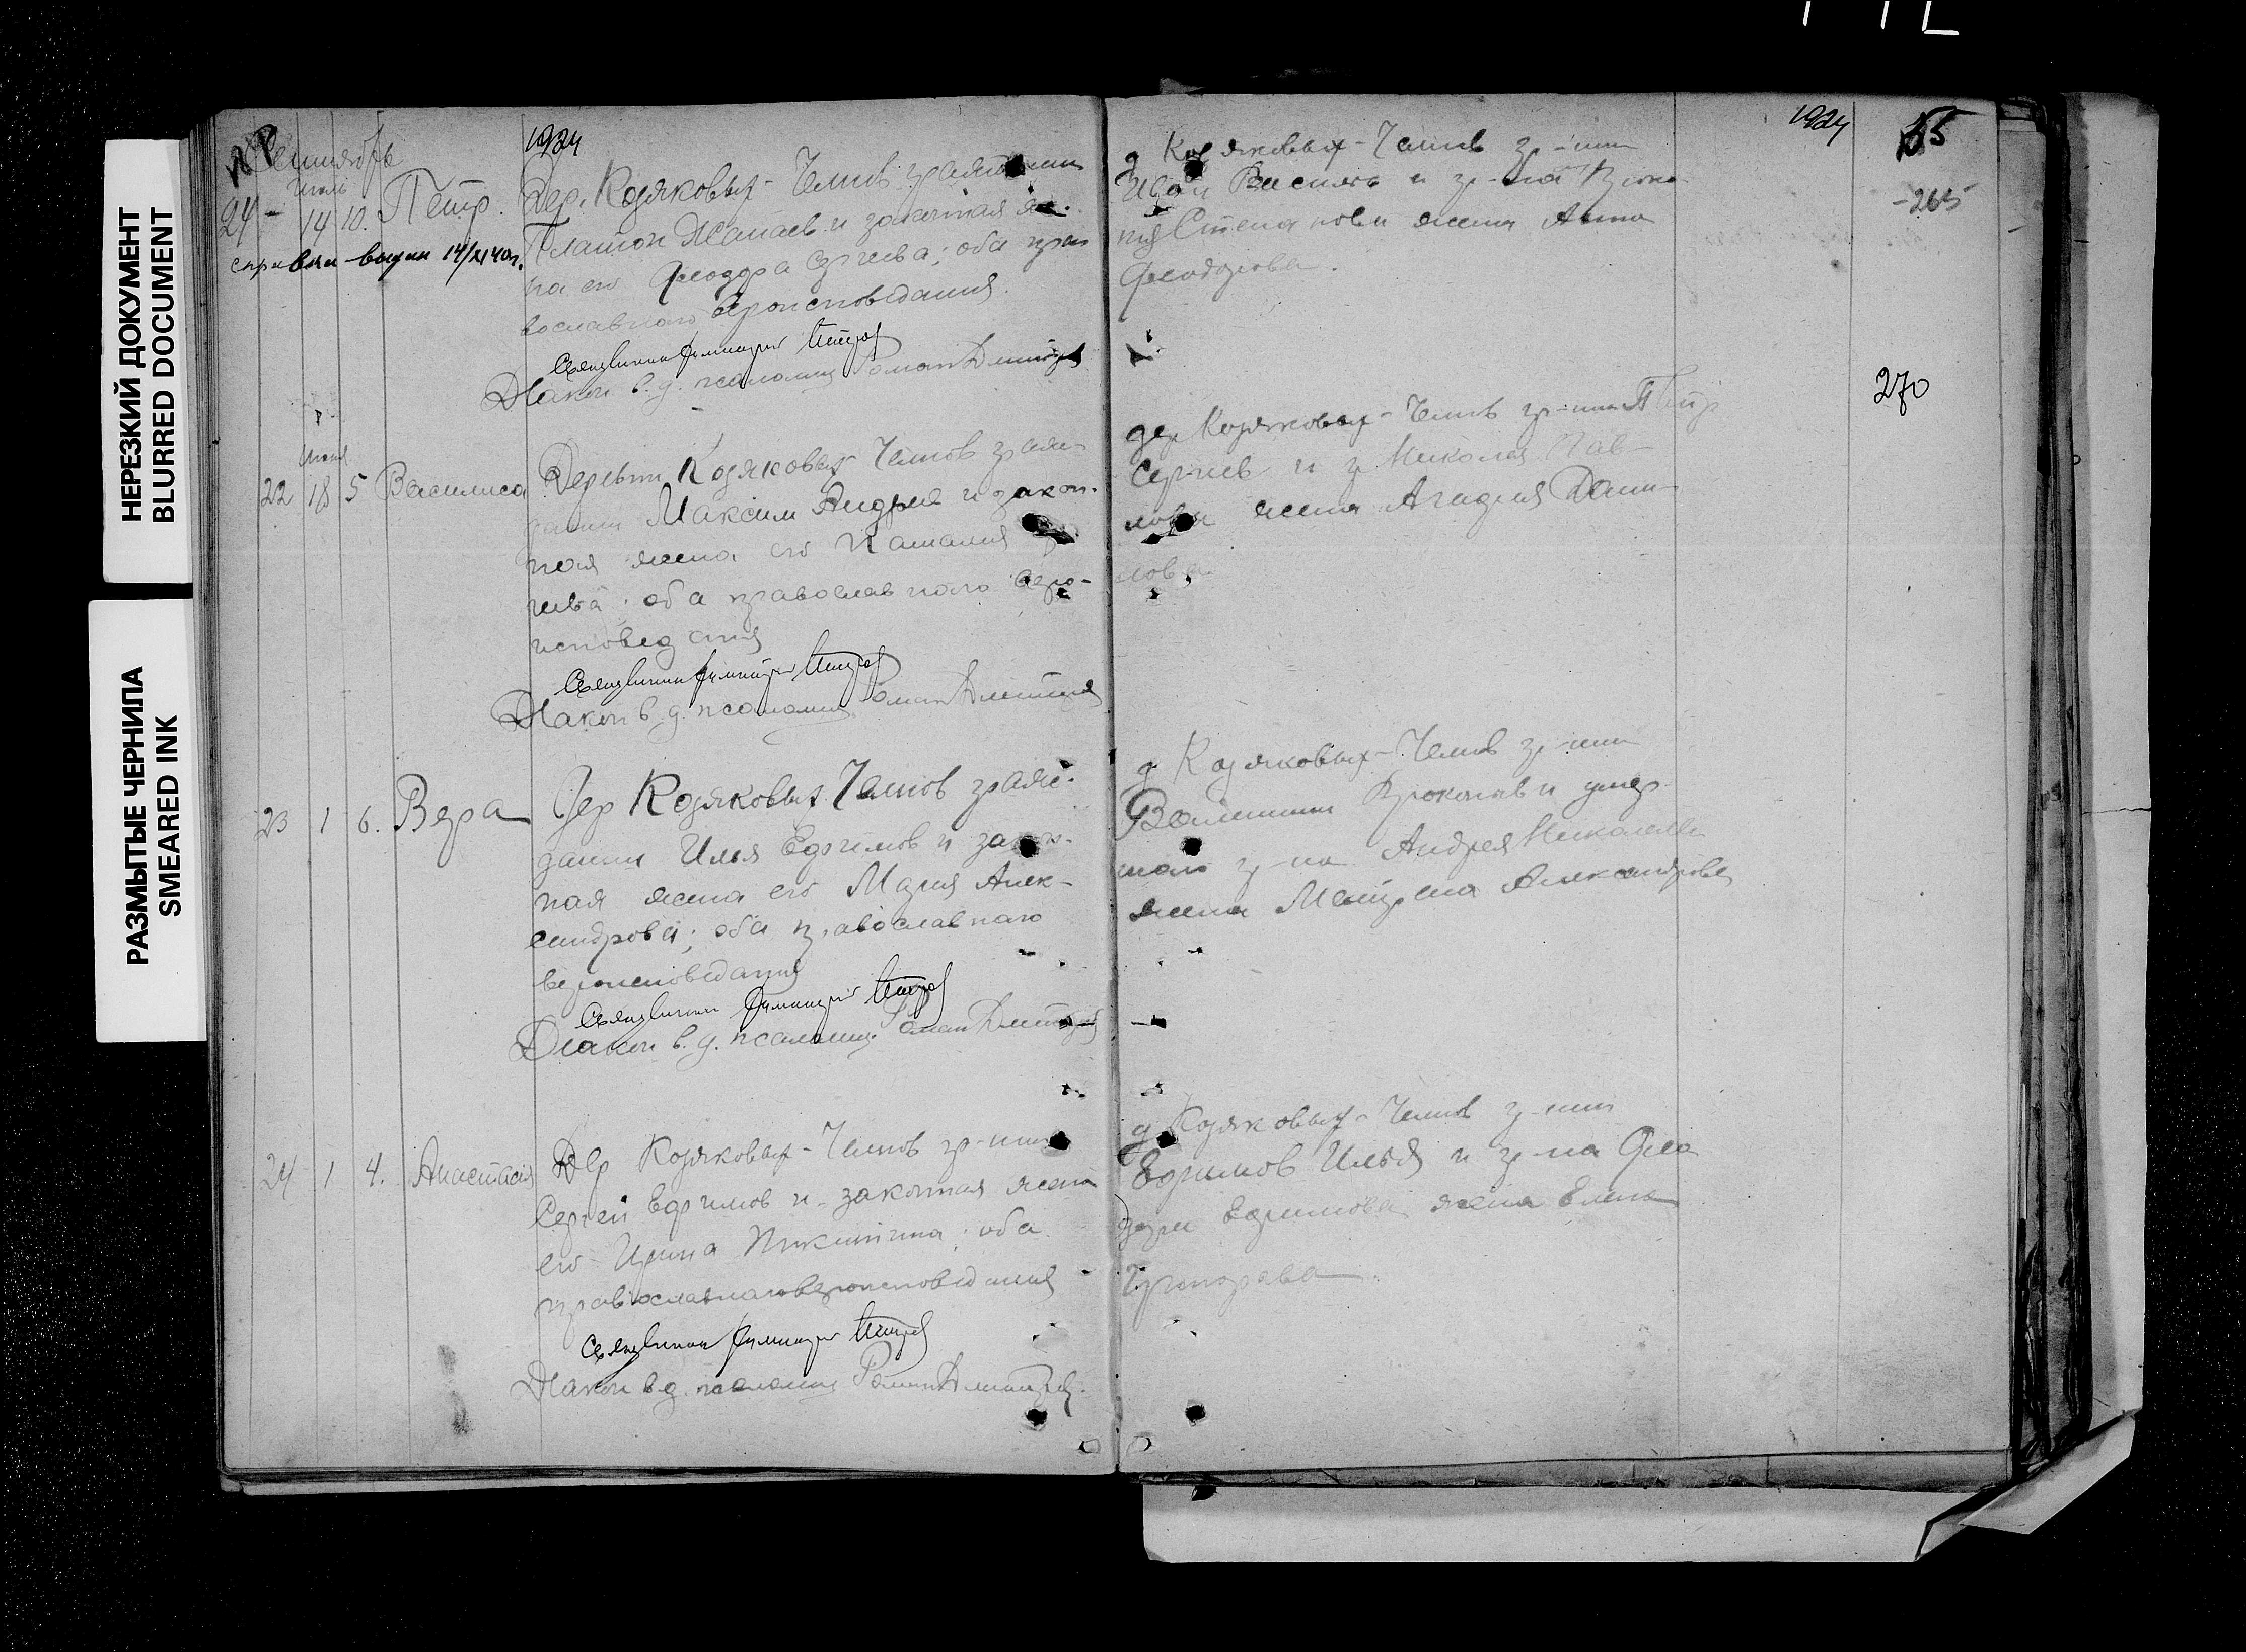 НЕРЕЗКИЙ ДОКУМЕНТ
BLURRED DOCUMENT
РАЗМЫТЫЕ ЧЕРНИЛА
SMEARED INK
Сентябрь
1924
Июль
24 - 14 10. Петр.
справка выдан 14/XI 40г.
Дер. Козяковых-Челнов граждании
Платон Манаев и законная же-
на его Феодора Сергиева; оба пра
вославного вероисповедания.
Священник Димитрий Петров
Диакон в. д. псаломщ Роман Дмитриев
Июня
22 18 5 Василиса
Деревни Козяковых Челнов граж-
данин Максим Андреев и закон-
ная жена его Наталия
гиева; оба православного веро-
исповедания
Священник Димитрий Петров
Диакон в. д. псаломщ. Роман Дмитриев
23 1 6. Вера
Дер Козяковых Челнов граж-
данин Илья Ефимов и закон-
ная жена его Мария Алек-
сандрова; оба православного
вероисповедания
Священник Димитрий Петров
Диакон в. д. псаломщ. Роман Дмитриев
24 1 4. Анастасия
Дер Козяковых-Челнов гр-нин
Сергей Ефимов и законная жена
его Ирина Никитина; оба
православного вероисповедания
Священник Димитрий Петров
Диакон в д. псаломщ Роман Дмитриев.
1924
55
-265
д Козяковых-Челнов гр-нин
Иван Васильев и гр-на Проко-
пия Степанова жена Анна
Феодорова.
270
дер Козяковых-Челнов гр-нин Петр
Сергиев и г Николая Пав-
лова жена Агафия Дани-
лова.
д Козяковых-Челнов гр-нин
Валентин Прокопьев и умер-
шаго гр-на Андрея Николаева
жена Матрена Александрова
д Козяковых-Челнов гр-нин
Ефимов Илья и гр-на Фео
дора Ефимова жена Елена
Григорьева